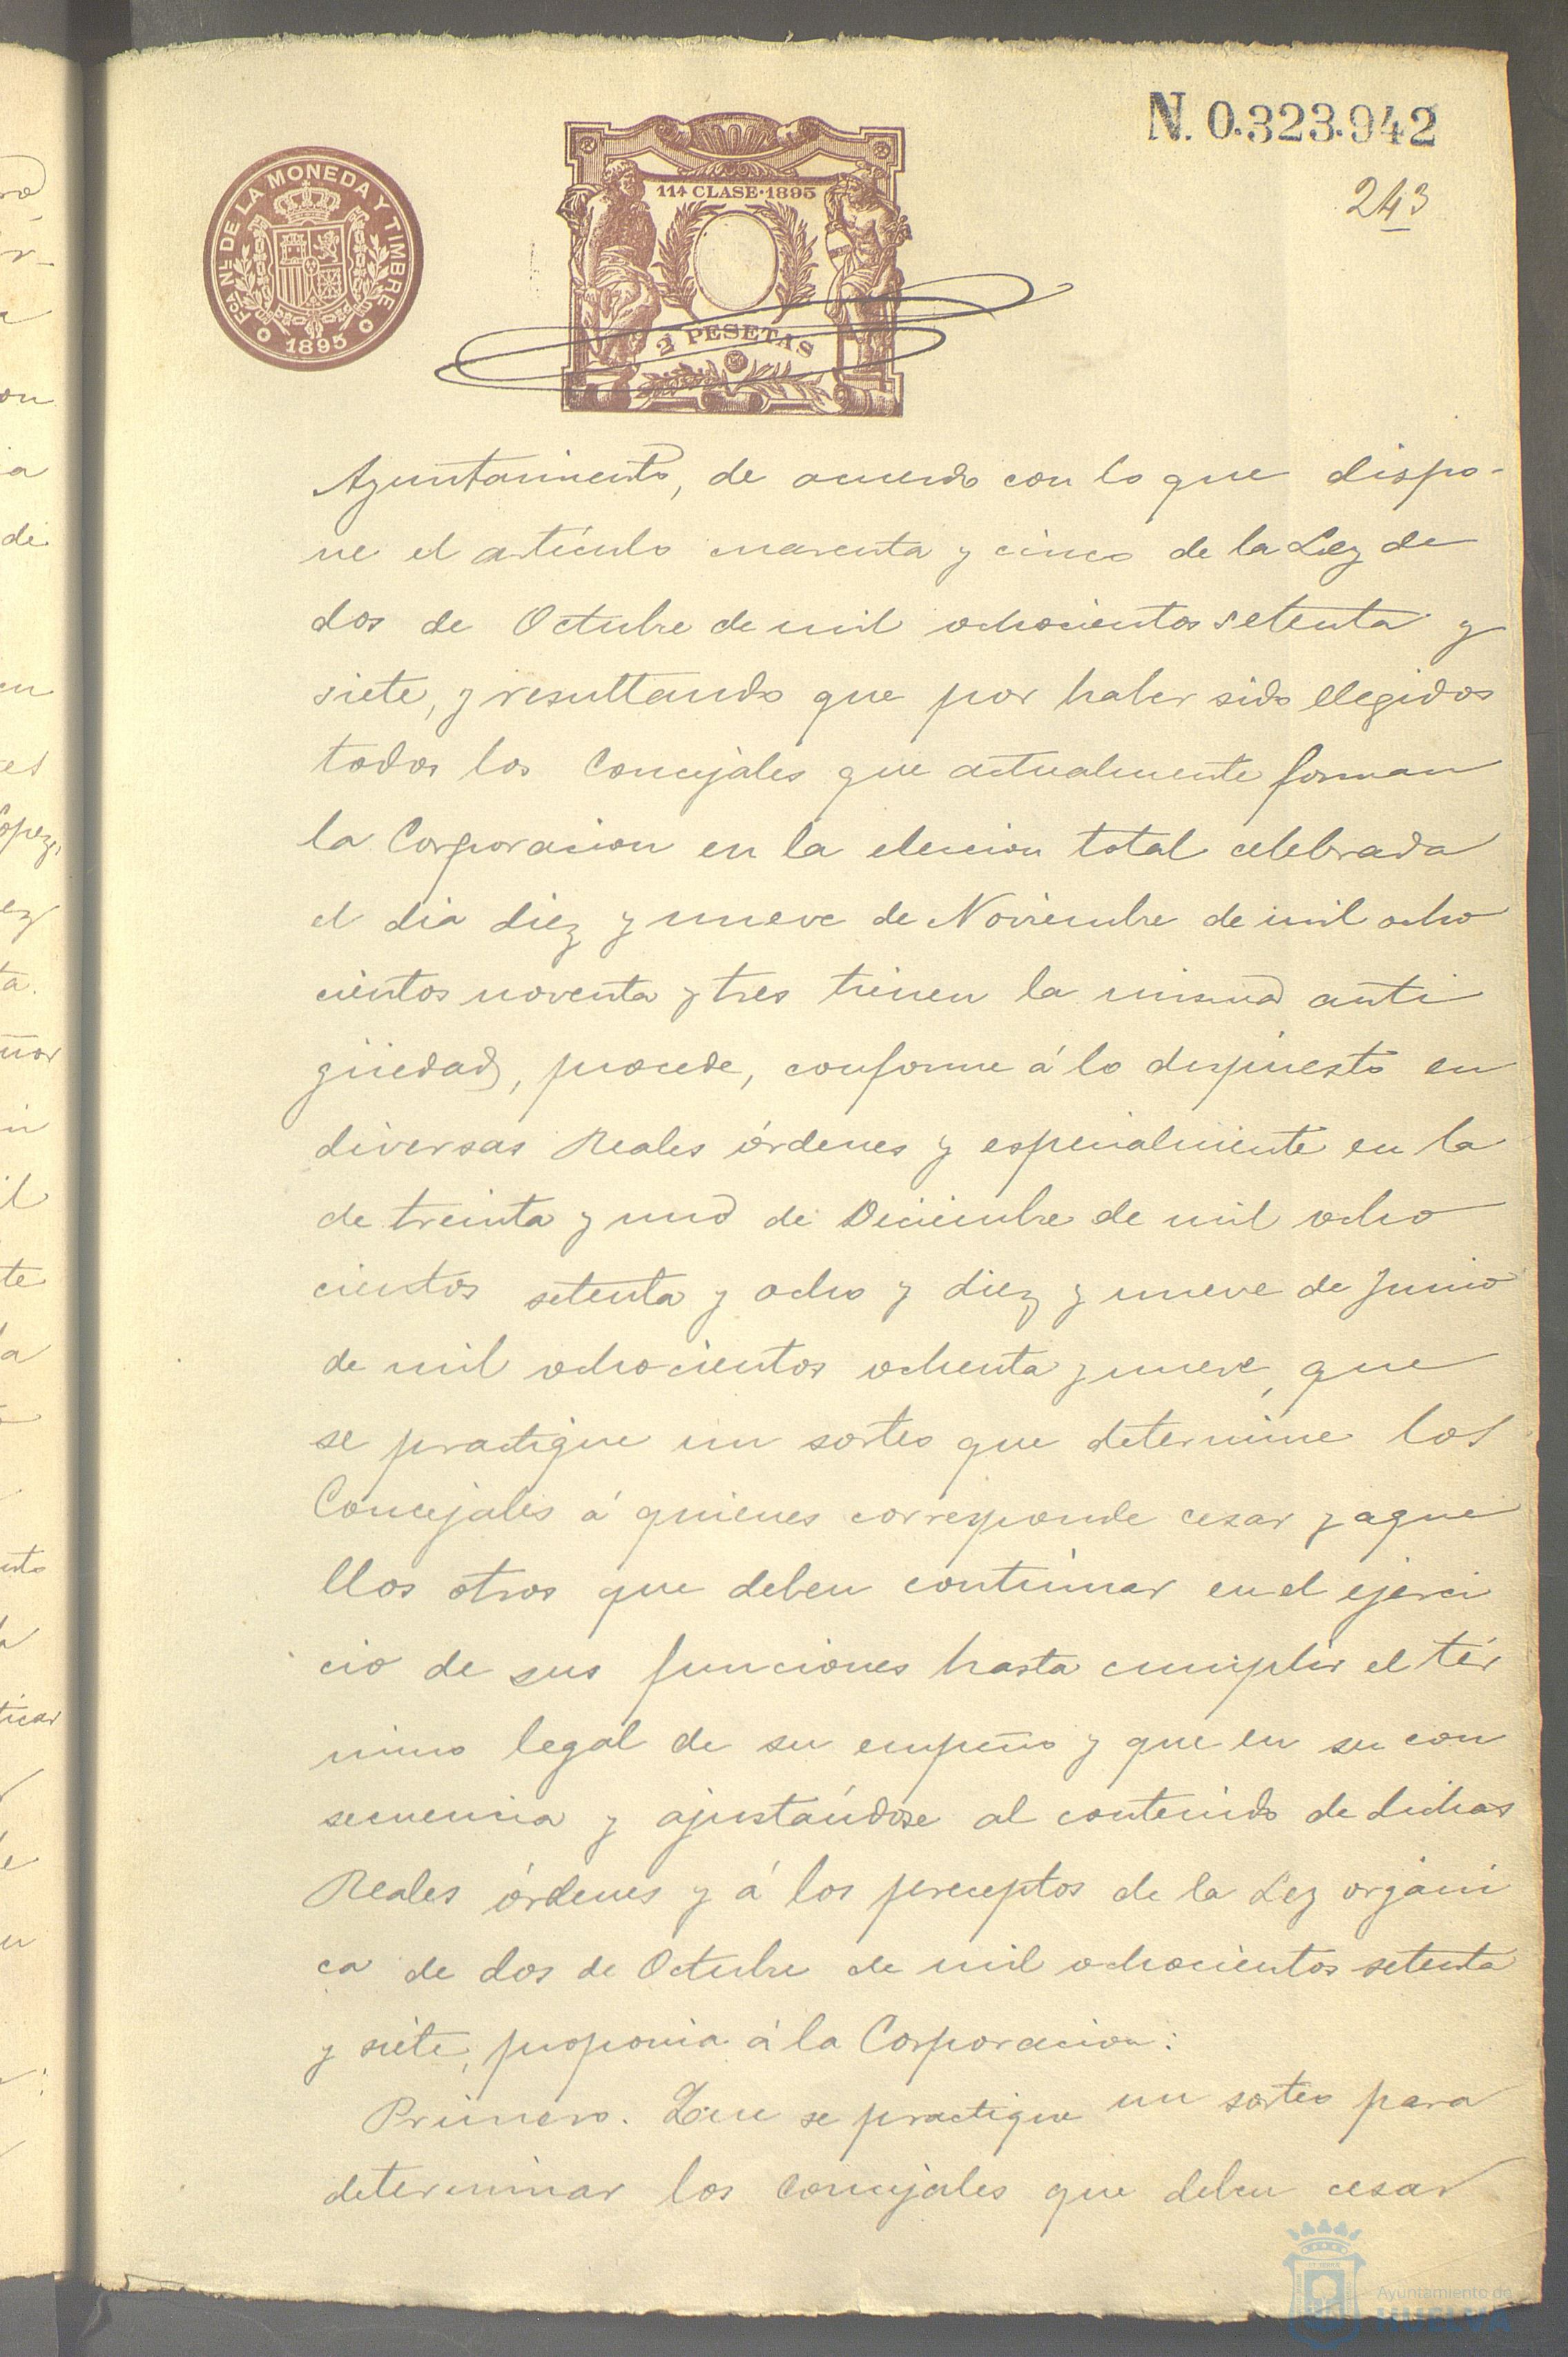 N. 0.323.942
243
FCA NL DE LA MONEDA Y TIMBRE
1895
11ª CLASE·1895
2 PESETAS
Ayuntamiento, de acuerdo con lo que dispo-
ne el artículo cuarenta y cinco de la Ley de
dos de Octubre de mil ochocientos setenta y
siete, y resultando que por haber sido elegidos
todos los Concejales que actualmente forman
la Corporacion en la eleccion total celebrada
el dia diez y nueve de Noviembre de mil ocho
cientos noventa y tres tienen la misma anti
güedad, procede, conforme á lo dispuesto en
diversas Reales órdenes y especialmente en la
de treinta y uno de Diciembre de mil ocho
cientos setenta y ocho y diez y nueve de Junio
de mil ochocientos ochenta y nueve, que
se practique un sorteo que determine los
Concejales á quienes corresponde cesar y aque
llos otros que deben continuar en el ejerci
cio de sus funciones hasta cumplir el tér
mino legal de su empeño y que en su con
secuencia y ajustándose al contenido de dichas
Reales órdenes y á los preceptos de la Ley orgáni
ca de dos de Octubre de mil ochocientos setenta
y siete, proponia á la Corporacion:
Primero. Que se practique un sorteo para
determinar los Concejales que deben cesar
Ayuntamiento de
HUELVA